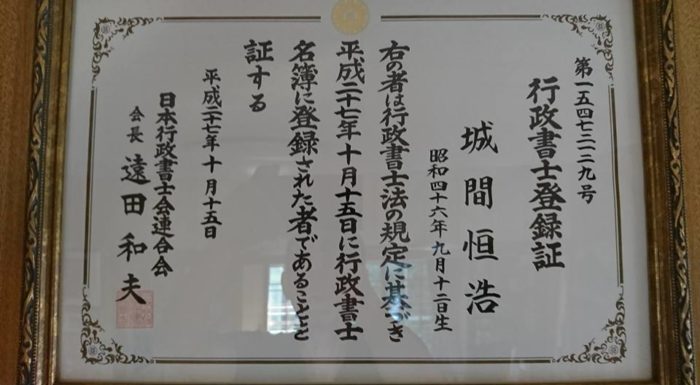 第一五四七三一二九号
行政書士登録証
城間恒浩
昭和四十六年九月十二日生
右の者は行政書士法の規定に基づき
平成二十七年十月十五日に行政書士
名簿に登録された者であることを
証する
平成二十七年十月十五日
日本行政書士会連合会
会長 遠田和夫